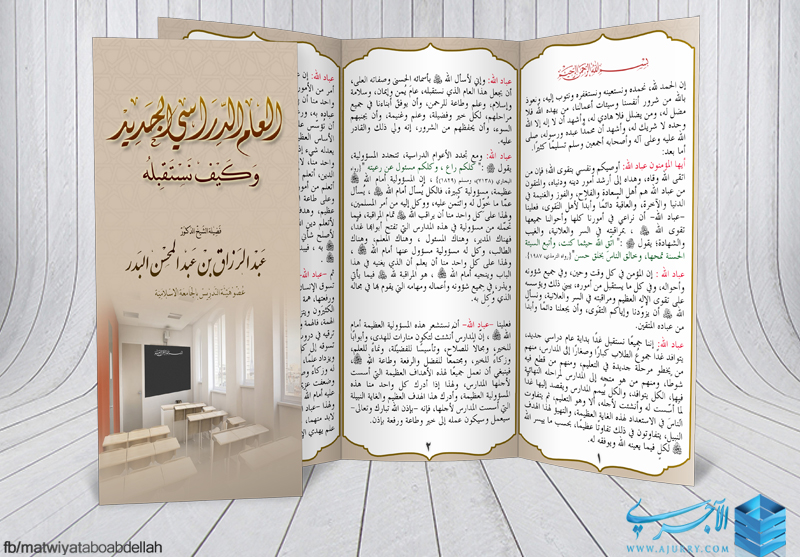 العام الدراسي الجديد
وكيف نستقبله
فضيلة الشيخ الدكتور
عبد الرزاق بن عبد المحسن البدر
عضو هيئة التدريس بالجامعة الإسلامية
بسم الله الرحمن الرحيم
إن الحمد لله، نحمده ونستعينه ونستغفره ونتوب إليه، ونعوذ
بالله من شرور أنفسنا وسيئات أعمالنا، من يهده الله فلا
مضل له، ومن يضلل فلا هادي له، وأشهد أن لا إله إلا الله
وحده لا شريك له، وأشهد أن محمدا عبده ورسوله، صلى
الله وسلم عليه وعلى آله وأصحابه أجمعين وسلم تسليمًا كثيرًا.
أما بعد:
أيها المؤمنون عباد الله: أوصيكم ونفسي بتقوى الله؛ فإن من
اتقى الله وقاه، وهداه إلى أرشد أمور دينه ودنياه، والمتقون
من عباد الله هم أهل السعادة والفلاح، والفوز والغنيمة في
الدنيا والآخرة، والعاقبة دائمًا وأبدًا لأهل التقوى، فعلينا
-عباد الله- أن نراعي في أمورنا كلها وأحوالنا جميعها
تقوى الله ﷻ، بمراقبته في السر والعلانية، والغيب
والشهادة؛ يقول ﷺ: "اتق الله حيثما كنت، وأتبع السيئة
الحسنة تمحها، وخالق الناس بخلق حسن"
عباد الله: إن المؤمن في كل وقت وحين، وفي جميع شؤونه
وأحواله، وفي كل ما يستقبل من أموره، يبني ذلك ويؤسسه
على تقوى الإله العظيم ومراقبته في السر والعلانية، ونسأل
الله ﷻ أن يزودنا وإياكم التقوى، وأن يجعلنا دائمًا وأبدًا
من عباده المتقين.
عباد الله: إننا جميعًا نستقبل غدًا بداية عام دراسي جديد،
يتوافد غدا جموع الطلاب كبارًا وصغارًا إلى المدارس، منهم
من يخطو مرحلة جديدة في التعليم، ومنهم من قطع فيه
شوطا، ومنهم من هو متجه إلى المدارس نحو النهاية
فيها، الكل يتوافد، والكل ييمم المدارس ويقصد إليها غدًا
لما أسست له وأنشئت لأجله، ألا وهو التعليم، ثم يتفاوت
الناس في الاستعداد لهذه الغاية العظيمة، والتهيؤ لهذا الهدف
النبيل، يتفاوتون في ذلك تفاوتًا عظيمًا، بحسب ما ييسر الله
ﷻ لكلٍ فيما يعينه الله ويوفقه له.
١
عباد الله: وإني لأسأل الله ﷻ بأسمائه الحسنى وصفاته العلى،
أن يجعل هذا العام الذي نستقبله، عام يُمن وإيمان، وسلامة
وإسلام، وعلم وطاعة للرحمن، وأن يوفق أبناءنا في جميع
مراحلهم، لكل خير وفضيلة، وعلم وغنيمة، وأن يجنبهم
السوء، وأن يحفظهم من الشرور، إنه ولي ذلك والقادر
عليه.
عباد الله: ومع تجدد الأعوام الدراسية، تتجدد المسؤولية،
يقول ﷺ: "كلكم راع، وكلكم مسئول عن رعيته"
إن المسؤولية أمام الله ﷻ
عظيمة، مسؤولية كبيرة، فالكل يسأل أمام الله ﷻ، يسأل
عمّا خوّل له وائتمن عليه، ووكل إليه من أمر المسلمين،
ولهذا على كل واحد منا أن يراقب الله ﷻ تمام المراقبة، فيما
تحمّله من مسؤولية في هذه المدارس التي تفتح أبوابها غدا،
فهناك المدير، وهناك المسئول، وهناك المعلم، وهناك
الطالب، وكل له مسؤولية مسؤول عنها أمام الله ﷻ،
ولهذا على كل واحد منا أن يعلم أن الذي يعنيه في هذا
الباب وينجيه أمام الله ﷻ، هو المراقبة لله ﷻ فيما يأتي
ويذر، في جميع شؤونه وأعماله ومهامه التي يقوم بها في مجاله
الذي وُكل به.
فعلينا -عباد الله- أن نستشعر هذه المسؤولية العظيمة أمام
الله ﷻ، إن المدارس أنشئت لتكون منارات للهدى، وأبوابًا
للخير، ومجالا للصلاح، وتأسيسًا للفضيلة، ونماءً للعلم،
وزكاءً للخير، ومجتمعًا للفضل والرفعة وطاعة الله ﷻ،
فينبغي أن نعمل جميعًا لهذه الأهداف العظيمة التي أسست
لأجلها المدارس، ولهذا إذا أدرك كل واحد منا هذه
المسؤولية العظيمة، وأدرك هذا الهدف العظيم والغاية النبيلة
التي أسست المدارس لأجلها، فإنه -بإذن الله تبارك وتعالى-
سيعمل وسيكون عمله إلى خير وطاعة ورفعة بإذن.
٢
fb/matwiyataboabdellah
الآجري
WWW.AJURRY.COM